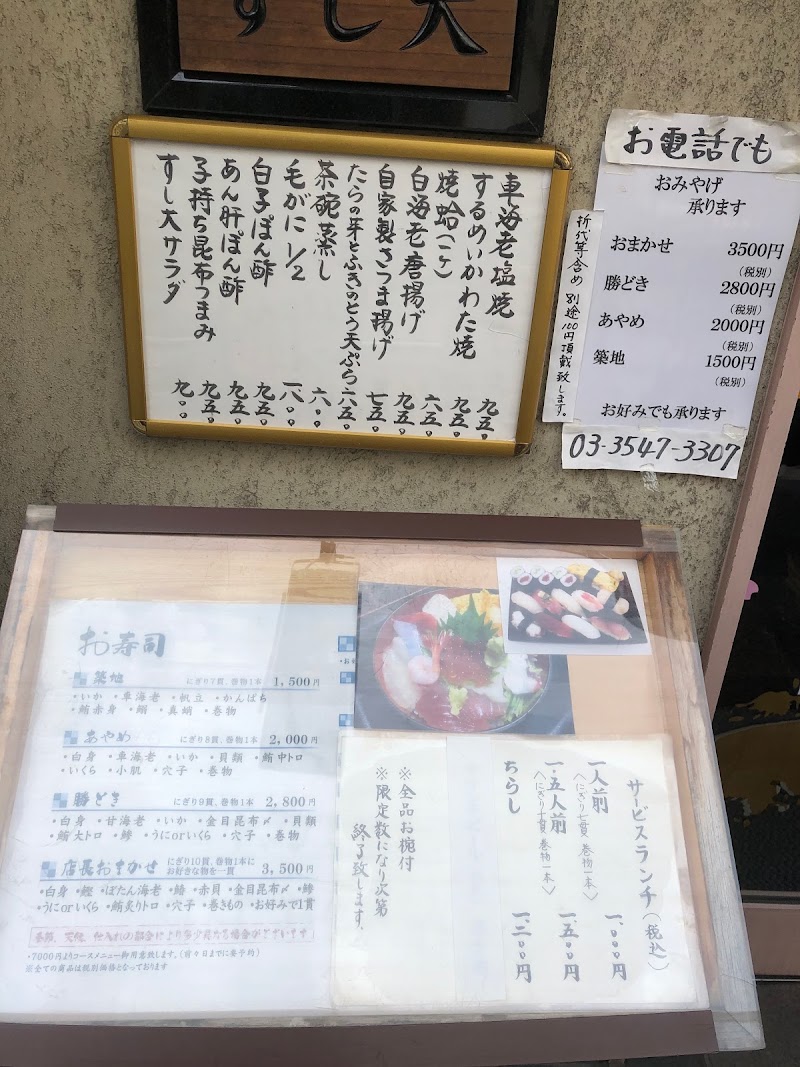 すし大
車海老塩焼 九五〇
するめいかわた焼 九五〇
焼蛤(一ヶ) 六五〇
白海老唐揚げ 九五〇
自家製さつま揚げ 七五〇
たらの芽とふきのとう天ぷら 六五〇
茶碗蒸し 六〇〇
毛がに1/2 一八〇〇
白子ぽん酢 九五〇
あん肝ぽん酢 九五〇
子持ち昆布つまみ 九五〇
すし大サラダ 九〇〇
お電話でも
おみやげ
承ります
おまかせ 3500円
(税別)
勝どき 2800円
(税別)
あやめ 2000円
(税別)
築地 1500円
(税別)
お好みでも承ります
03-3547-3307
折代等含め 別途100円頂戴致します。
お寿司
築地 にぎり7貫、巻物1本 1,500円
・いか ・車海老 ・帆立 ・かんぱち
・鮪赤身 ・鯛 ・真蛸 ・巻物
あやめ にぎり8貫、巻物1本 2,000円
・白身 ・車海老 ・いか ・貝類 ・鮪中トロ
・いくら ・小肌 ・穴子 ・巻物
勝どき にぎり9貫、巻物1本 2,800円
・白身 ・甘海老 ・いか ・金目昆布〆 ・貝類
・鮪大トロ ・鯵 ・うにorいくら ・穴子 ・巻物
店長おまかせ にぎり10貫、巻物1本に
お好きな物を一貫 3,500円
・白身 ・鰹 ・ぼたん海老 ・鰆 ・赤貝 ・金目昆布〆 ・鯵
・うにorいくら ・鮪炙りトロ ・穴子 ・巻きもの ・お好みで1貫
季節、天候、仕入れの都合により多少異なる場合がございます
・7000円よりコースメニュー御用意致します。(前々日までに要予約)
※全ての商品は税別価格となっております
サービスランチ(税込)
一人前 一、〇〇〇円
〈にぎり七貫 巻物一本〉
一・五人前 一、五〇〇円
〈にぎり十貫 巻物一本〉
ちらし 一、三〇〇円
※全品お椀付
※限定数になり次第
終了致します。